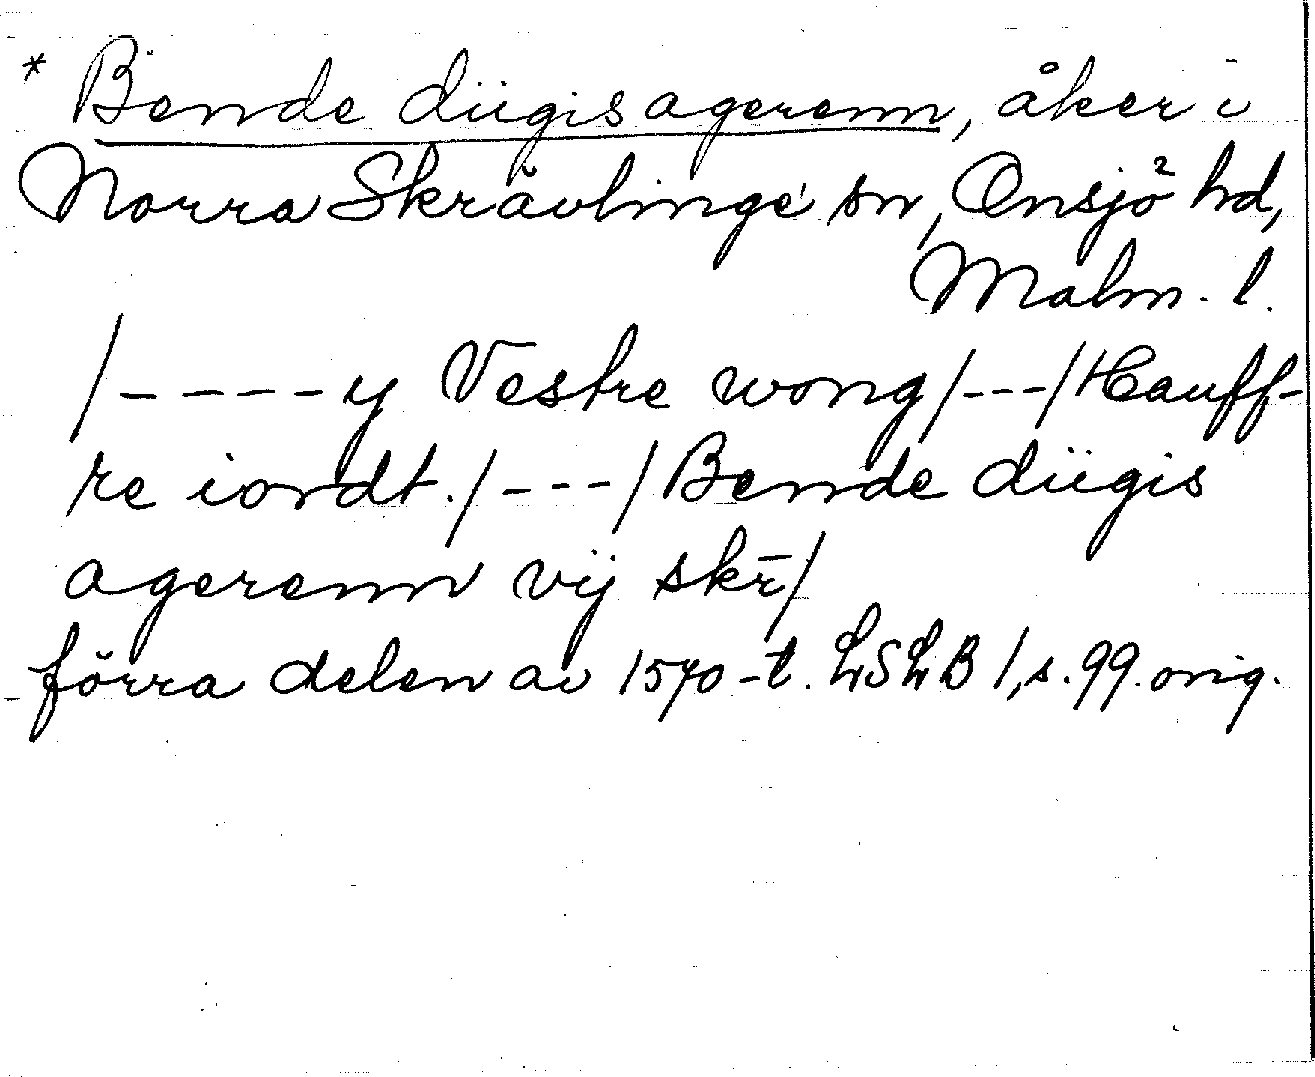 * Bende dügis agerenn, åker i
Norra Skrävlinge sn, Onsjö hd,
Malm. l.
/----y Vestre wong/---/Hauff-
re iordt./---/Bende dügis
agerenn vij skr̄/
förra delen av 1570-t. LSLB 1, s. 99. orig.